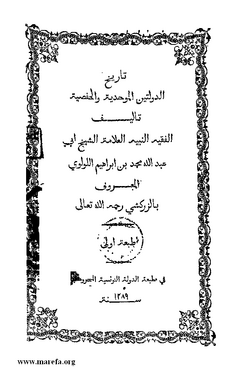 تاريخ
الدولتين الموحدية والحفصية
تاليف
الفقيه النبيه العلامة الشيخ ابي
عبد الله محمد بن ابراهيم اللولوي
المعروف
بالزركشي رحمه الله تعالى
طبعة اولى
في مطبعة الدولة التونسية
سنة ١٢٨٩
www.marefa.org